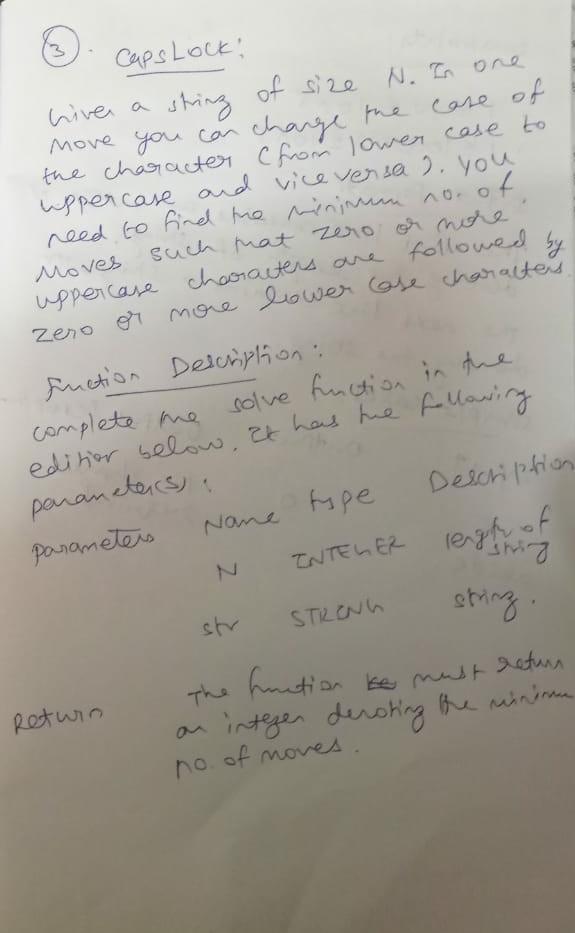 3. CapsLock:
Given a string of size N. In one
Move you can change the case of
the character (from lower case to
uppercase and viceversa). You
need to find the minimum no. of
Moves such that zero or more
uppercase characters are followed by
zero or more lower case characters.
Function Description:
complete the solve function in the
editior below. It has the following
parameter(s):
parameters Name type Description
N INTEGER length of string
str STRING string.
Return The function must return
an integer denoting the minimum
no. of moves.